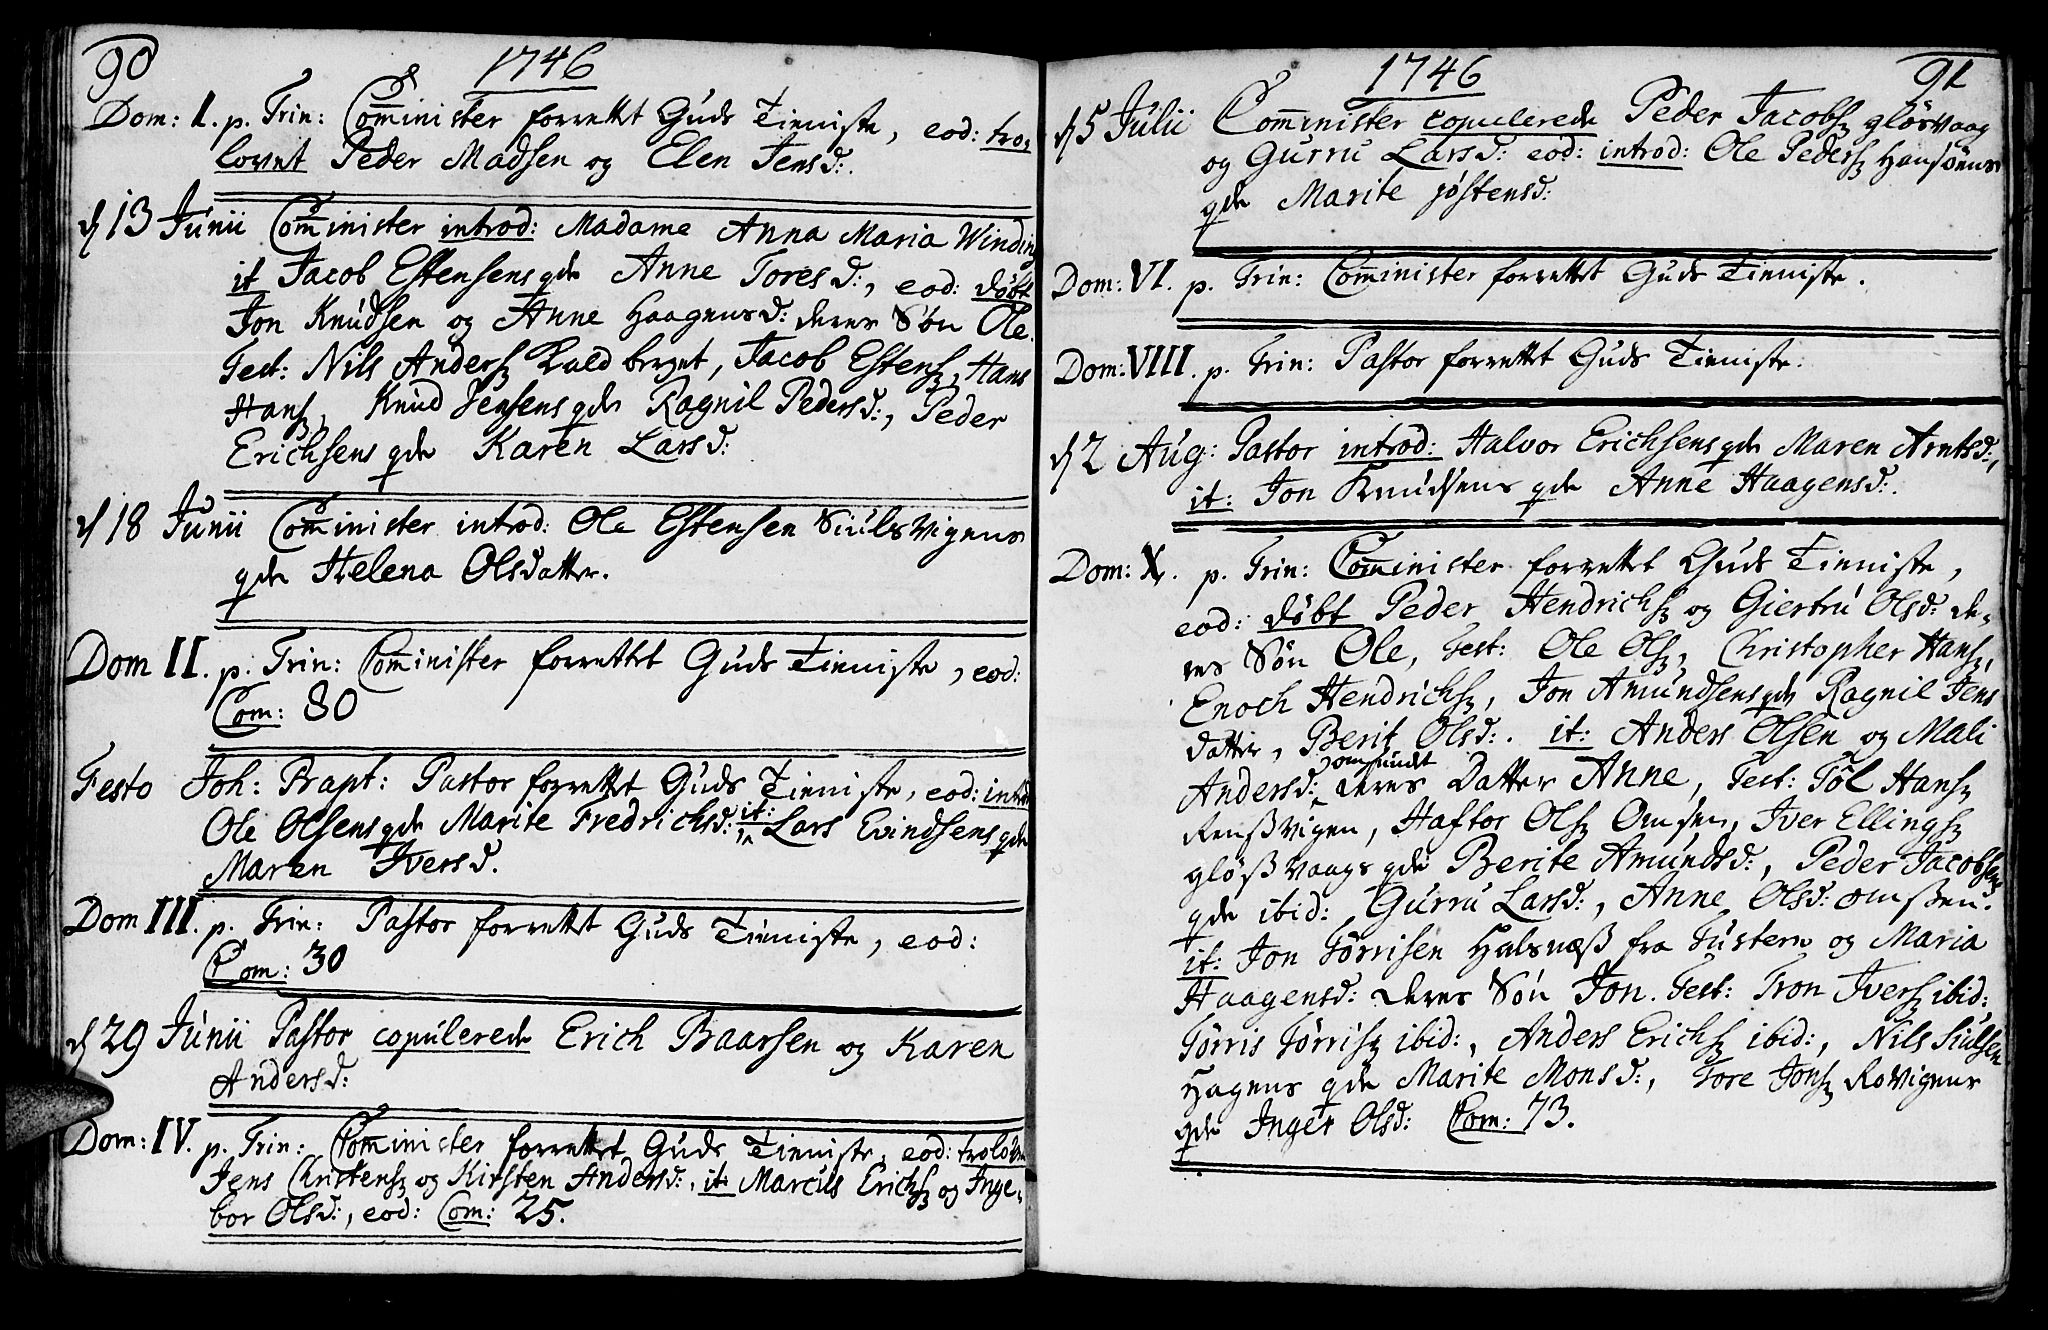 90
1746
Dom: I. p. Trin: Com̄inister forrettet Guds Tienniste, eod: tro,
lovet Peder Madsen og Elen Jensd:.
d 13 Junii Com̄inister introd: Madame Anna Maria Winding
it Jacob Estensens qde Anne Toresd:, eod: døbt
Jon Knudsen og Anne Haagensd: deres Søn Ole.
Test: Nils Anders: Kald berget, Jacob Estens:, Hans
Hans:, Knud Jensens qde Ragnil Pedersd:, Peder
Erichsens qde Karen Larsd:
d 18 Junii Com̄inister introd: Ole Estensen Siulsvigens
qde Helena Olsdatter.
Dom II. p. Trin: Com̄inister forrettet Guds Tienniste, eod:
Com: 80
Festo Joh: Bapt: Pastor forrettet Guds Tienniste, eod: introd
Ole Olsens qde Marite Fredrichsd: it: Lars Evindsens qde
Maren Iversd.
Dom III. p. Trin: Pastor forrettet Guds Tienniste, eod:
Com: 30
d 29 Junii Pastor copulerede Erich Baarsen og Karen
Andersd:
Dom: IV. p. Trin: Com̄inister forrettet Guds Tienniste, eod: trolovet
Jens Christens: og Kirsten Andersd:, it: Marcus Erichs: og Inge,
bor Olsd:, eod: Com: 25.
1746
91
d 5 Julii Com̄inister copulerede Peder Jacobs: gløsvaag
og Gurru Larsd: eod: introd: Ole Peders: Hansøens
qde Marite jøstensd:
Dom: VI. p. Trin: Com̄inister forrettet Guds Tienniste.
Dom: VIII. p. Trin: Pastor forrettet Guds Tienniste.
d 2 Aug: Pastor introd: Halvor Erichsens qde Maren Arntsd:,
it: Jon Knudsens qde Anne Haagensd:.
Dom: X. p. Trin: Com̄inister forrettet Guds Tienniste,
eod: døbt Peder Hendrichs: og Giertru Olsd: de-
res Søn Ole, Test: Ole Ols:, Christopher Hans:,
Enoch Hendrichs:, Jon Amundsens qde Ragnil Jens
datter, Berit Olsd:. it: Anders Olsen og Mali
omsundt
Andersd: deres Datter Anne, Test: Tøl Hans:
Rensßvigen, Haftor Ols: Omsen, Iver Ellings:
gløßvaags qde Berite Amundsd:, Peder Jacobsens
qde ibid: Gurru Larsd:, Anne Olsd: omßen.
it: Jon Tørrisen Halsnæß fra Tustern og Maria
Haagensd: deres Søn Jon. Test: Tron Ivers: ibid:
Tørris Tørris: ibid:, Anders Erichs: ibid:, Nils Siulsen
Hagens qde Marite Monsd:, Tore Jons: Rovigens
qde Inger Olsd: Com: 73.